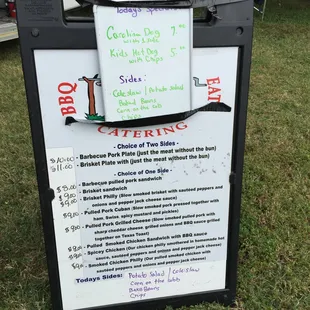 Todays Specials
Carolina Dog 7.00
with 1 side
Kids Hot Dog 5.00
with Chips
Sides:
Coleslaw / Potato Salad
Baked Beans
Corn on the cob
Chips
BBQ
EAT
CATERING
- Choice of Two Sides -
$10.00 - Barbecue Pork Plate (just the meat without the bun)
$11.00 - Brisket Plate with (just the meat without the bun)
- Choice of One Side -
- Barbecue pulled pork sandwich
- Brisket sandwich
- Brisket Philly (Slow smoked brisket with sauteed peppers and
onions and pepper jack cheese sauce)
- Pulled Pork Cuban (Slow smoked pork pressed together with
ham, Swiss, spicy mustard and pickles)
- Pulled Pork Grilled Cheese (Slow smoked pulled pork with
sharp cheddar cheese, grilled onions and BBQ sauce grilled
together on Texas Toast)
- Pulled Smoked Chicken Sandwich with BBQ sauce
- Spicey Chicken (Our chicken philly smothered in homemade hot
sauce with sauteed peppers and onions and pepper jack cheese)
- Smoked Chicken Philly (Our pulled slow smoked chicken with
sauteed peppers and onions and pepper jack cheese)
Todays Sides: Potato Salad / Coleslaw
Corn on the cob
Baked Beans
Chips